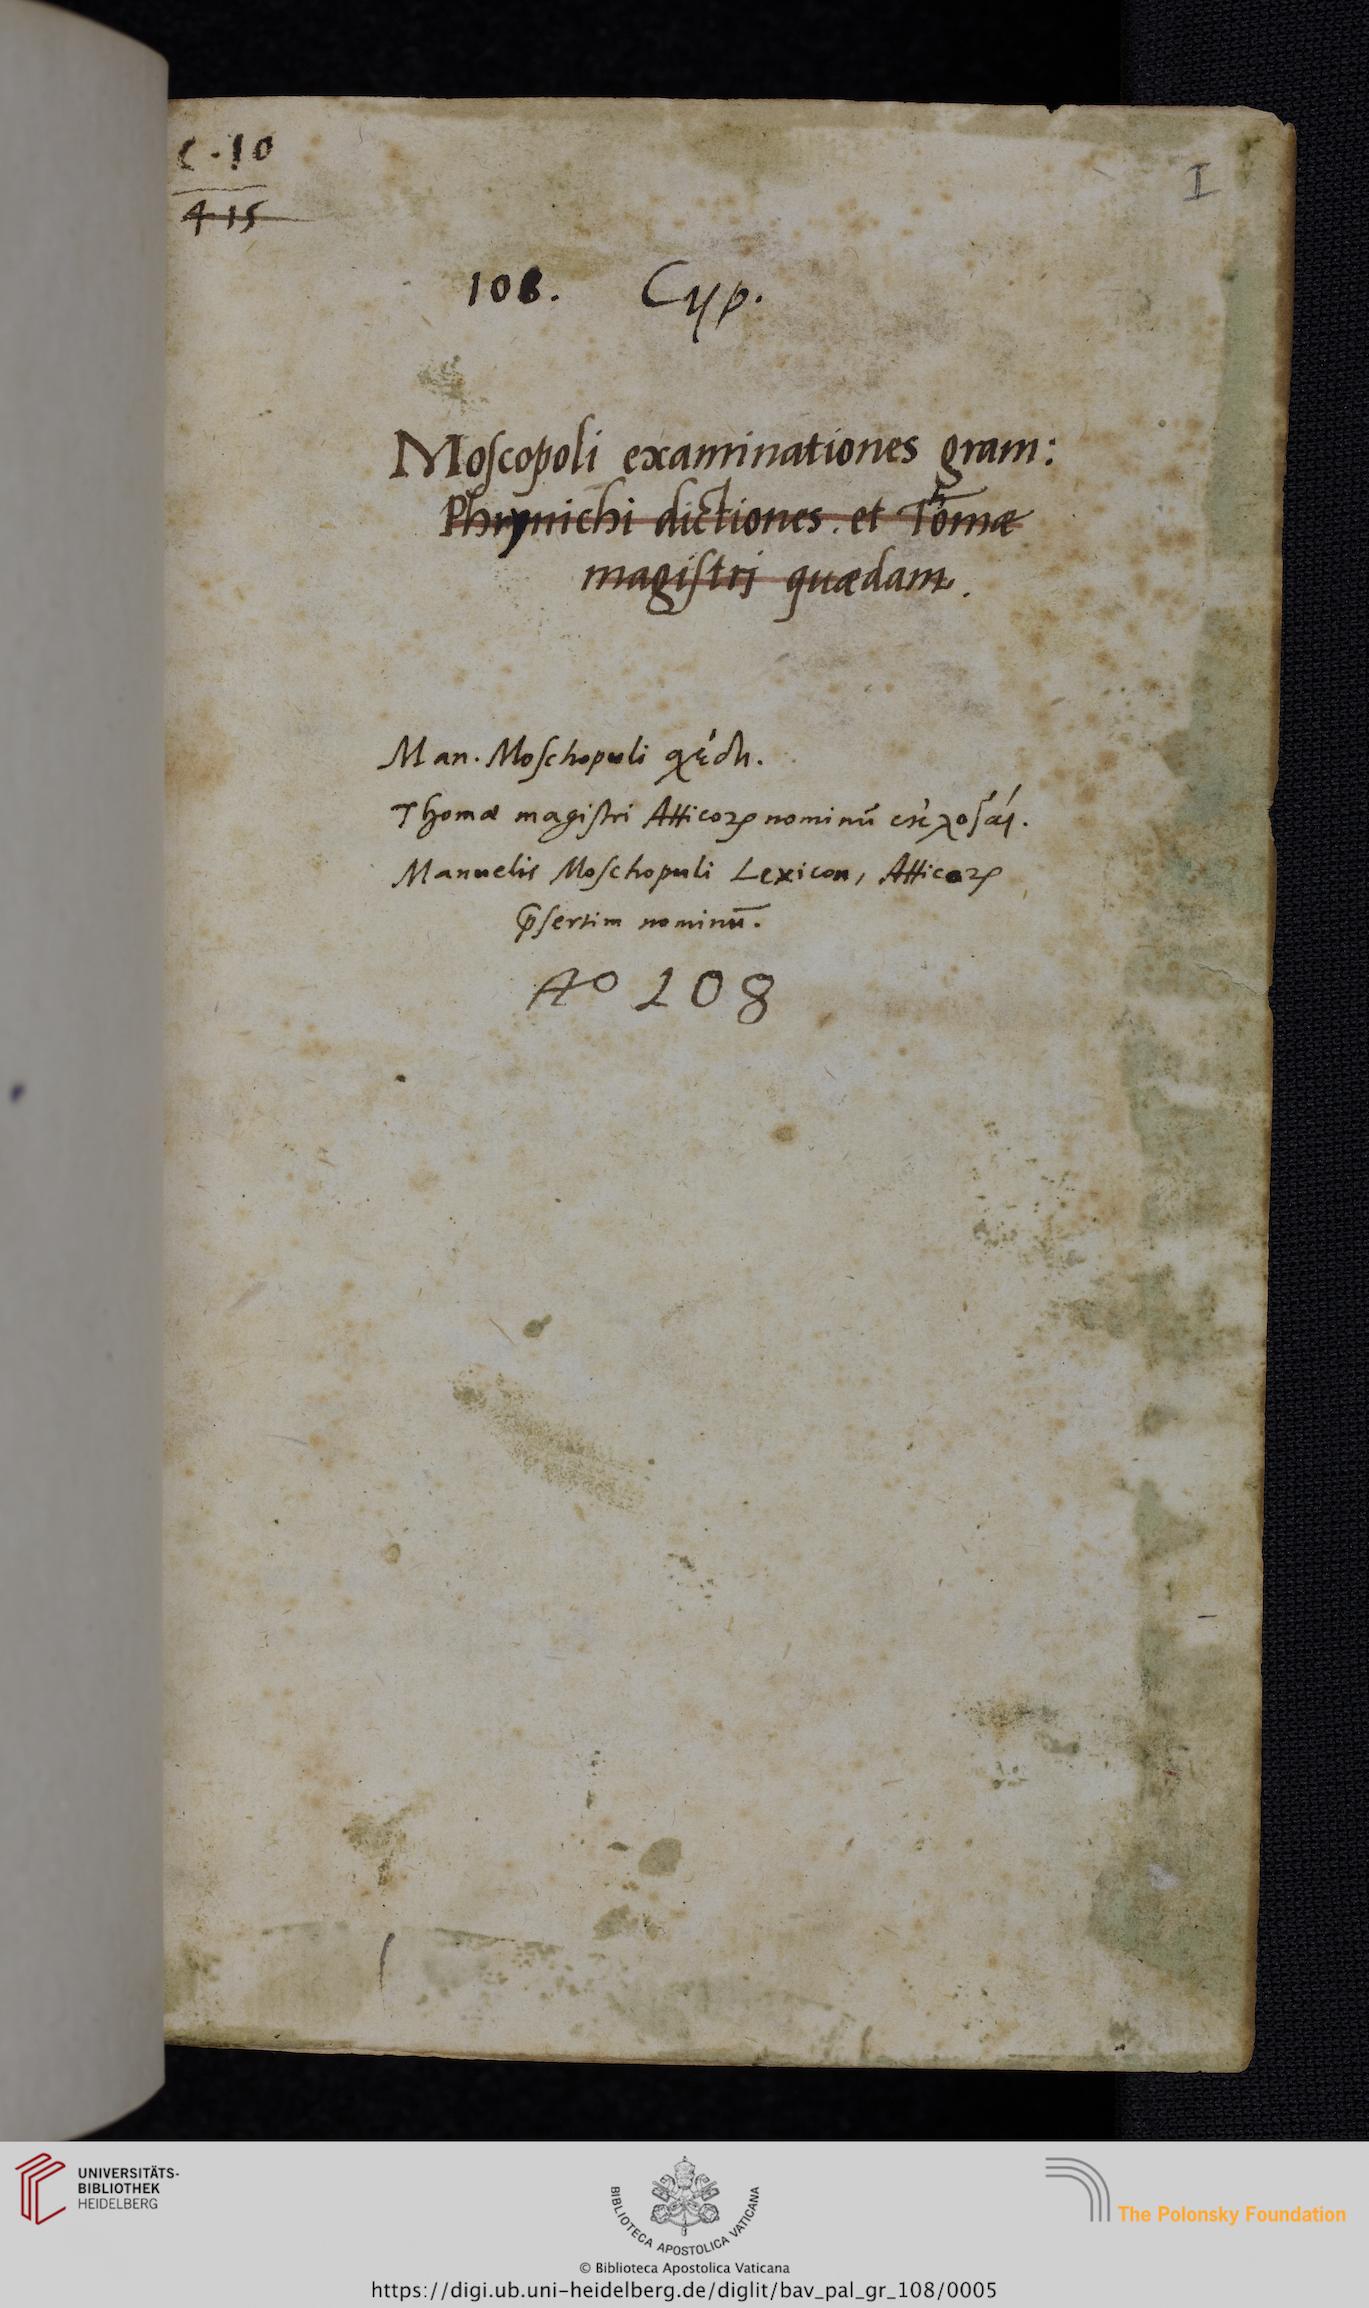 C·10
415
I
108. Cyp.
Moſcopoli examinationes gram:
Phrynichi dictiones. et Tomæ
magiſtri quædam.
Man. Moſchopuli σχέδη.
Thomæ magiſtri Atticoꝝ nominū ἐκλογαί.
Manuelis Moſchopuli Lexicon, Atticoꝝ
p̄ſertim nominū.
Ao 108
UNIVERSITÄTS-
BIBLIOTHEK
HEIDELBERG
BIBLIOTECA APOSTOLICA VATICANA
The Polonsky Foundation
© Biblioteca Apostolica Vaticana
https://digi.ub.uni-heidelberg.de/diglit/bav_pal_gr_108/0005